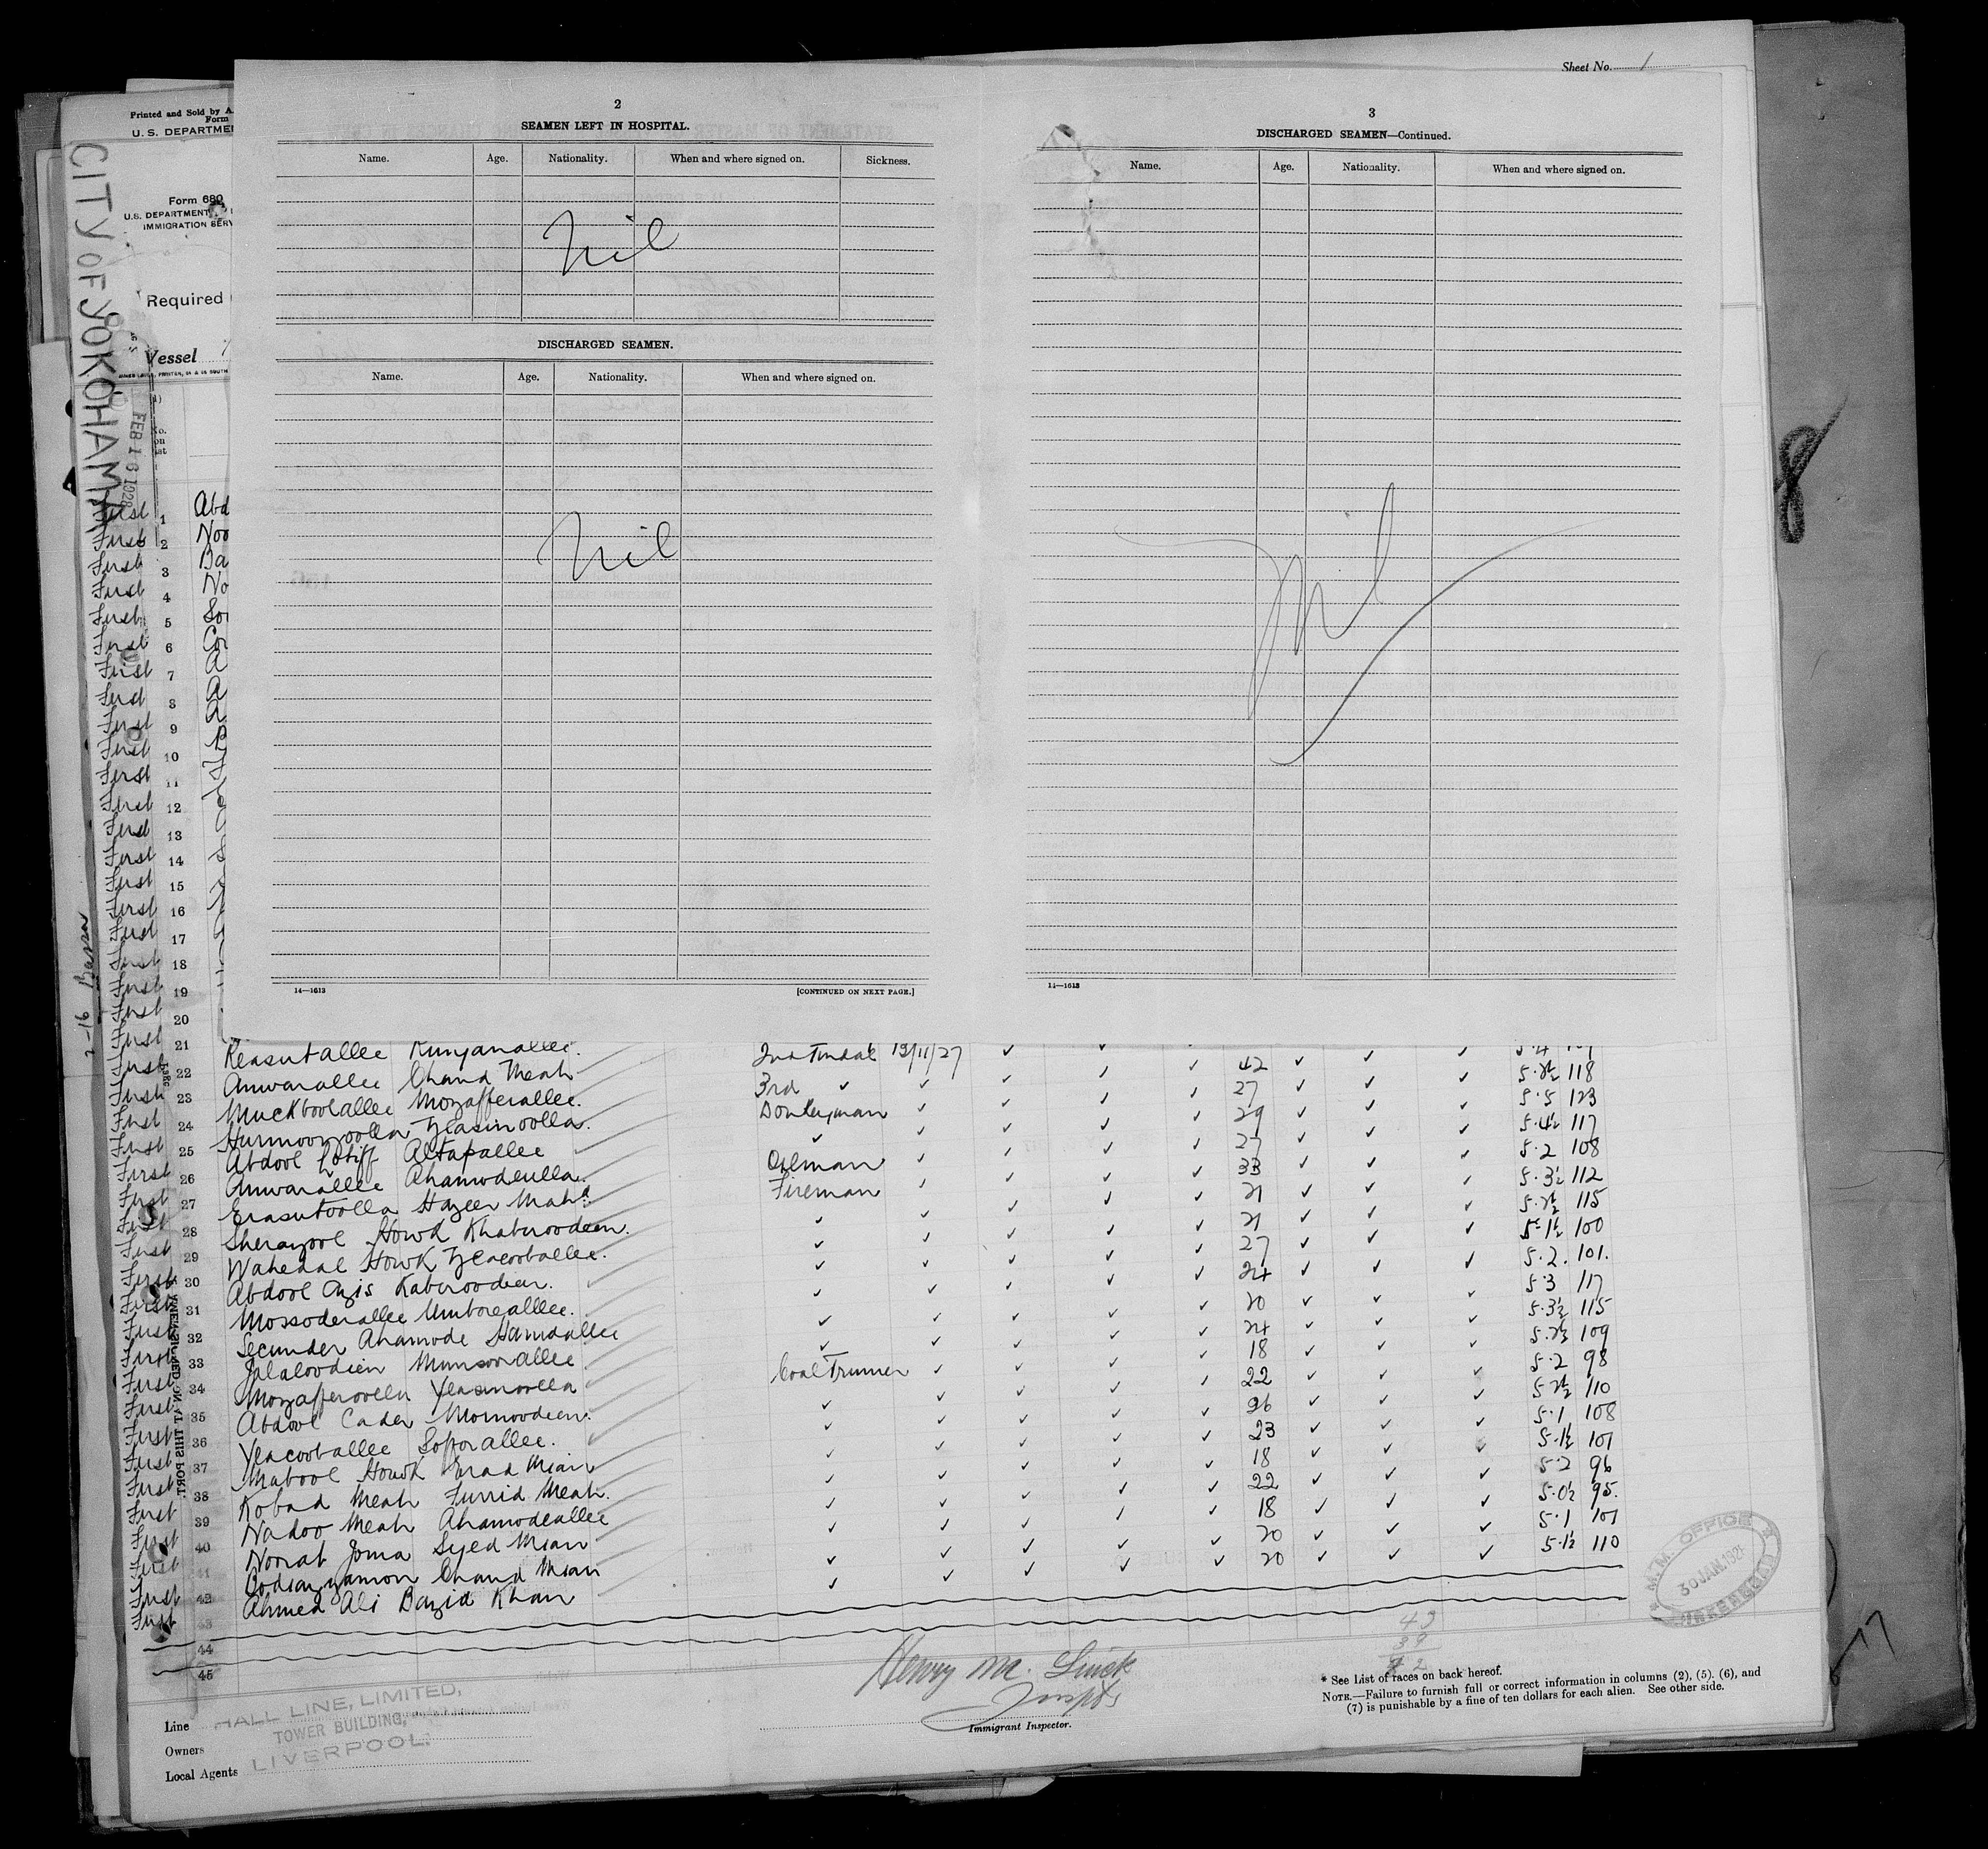 Sheet No. 1
Printed and Sold by A.
Form
U. S. DEPARTME
CITY OF YOKOHAMA
Form 680
U.S. DEPARTMENT
IMMIGRATION SERV
Required
Vessel
FEB 16 1928
2
SEAMEN LEFT IN HOSPITAL.
Name. Age. Nationality. When and where signed on. Sickness.
Nil
DISCHARGED SEAMEN.
Name. Age. Nationality. When and where signed on.
Nil
14—1613 [CONTINUED ON NEXT PAGE.]
3
DISCHARGED SEAMEN—Continued.
Name. Age. Nationality. When and where signed on.
Nil
14—1613
8
First 1 Abd
First 2 Noo
First 3 Ba
First 4 No
First 5 Son
First 6 Con
First 7 A
First 8 A
First 9 A
First 10
First 11
First 12
First 13
First 14
First 15
First 16
First 17
First 18
First 19
First 20
First 21 Keasutallee Kunjanallee. 2nd Tindal 13/11/27 ✓ ✓
First 22 Anwarallee Chand Meah 3rd ✓ ✓ ✓ ✓ ✓ 42 ✓ ✓ ✓ 5·2½ 118
First 23 Muckboolallee Mozafferallee. Donkeyman ✓ ✓ ✓ ✓ 27 ✓ ✓ ✓ 5·5 123
First 24 Hurmoozoolla Yeasinoolla. ✓ ✓ ✓ ✓ ✓ 29 ✓ ✓ ✓ 5·4½ 117
First 25 Abdool Lotiff Altafallee Oilman ✓ ✓ ✓ ✓ 27 ✓ ✓ ✓ 5·2 108
First 26 Anwarallee Ahamodeulla. Fireman ✓ ✓ ✓ ✓ 33 ✓ ✓ ✓ 5·3½ 112
First 27 Erasutoolla Hazer Mahd ✓ ✓ ✓ ✓ ✓ 21 ✓ ✓ ✓ 5·2½ 115
First 28 Sherazool Howk Khaberoodeen. ✓ ✓ ✓ ✓ ✓ 21 ✓ ✓ ✓ 5·1½ 100
First 29 Wahedal Howk Yeacooballee. ✓ ✓ ✓ ✓ ✓ 27 ✓ ✓ ✓ 5·2. 101.
First 30 Abdool Azis Kaberoodeen. ✓ ✓ ✓ ✓ ✓ 24 ✓ ✓ ✓ 5·3 117
First 31 Mossoderallee Umboreallee. ✓ ✓ ✓ ✓ ✓ 20 ✓ ✓ ✓ 5·3½ 115
First 32 Secunder Ahamode Hamdallee ✓ ✓ ✓ ✓ ✓ 24 ✓ ✓ ✓ 5·2½ 109
First 33 Jalaloodeen Munsoorallee Coal Trimmer ✓ ✓ ✓ ✓ 18 ✓ ✓ ✓ 5·2 98
First 34 Mozafferoolla Yeasinoolla ✓ ✓ ✓ ✓ ✓ 22 ✓ ✓ ✓ 5·2½ 110
First 35 Abdool Cader Momoodeen. ✓ ✓ ✓ ✓ ✓ 26 ✓ ✓ ✓ 5·1 108
First 36 Yeacooballee Soforallee. ✓ ✓ ✓ ✓ ✓ 23 ✓ ✓ ✓ 5·1½ 101
First 37 Mabool Howk Erad Mian ✓ ✓ ✓ ✓ ✓ 18 ✓ ✓ ✓ 5·2 96
First 38 Kobad Meah Furrid Meah. ✓ ✓ ✓ ✓ ✓ 22 ✓ ✓ ✓ 5·0½ 95.
First 39 Nadoo Meah Ahamodeallee ✓ ✓ ✓ ✓ ✓ 18 ✓ ✓ ✓ 5·1 101
First 40 Noorat Joma Syed Mian ✓ ✓ ✓ ✓ ✓ 20 ✓ ✓ ✓ 5·1½ 110
First 41 Chand Mian ✓ ✓ ✓ ✓ ✓ 20 ✓ ✓ ✓
First 42 Ahmed Ali Bazid Khan
First 43
44
45
43
39
Henry M.
Immigrant Inspector.
Line HALL LINE, LIMITED,
Owners TOWER BUILDING,
Local Agents LIVERPOOL.
* See List of races on back hereof.
NOTE.—Failure to furnish full or correct information in columns (2), (5). (6), and
(7) is punishable by a fine of ten dollars for each alien. See other side.
M.M. OFFICE
30 JAN. 1928
BIRKENHEAD